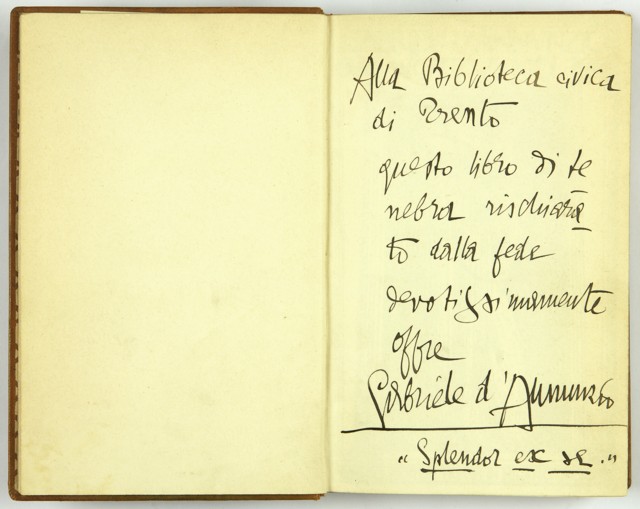 Alla Biblioteca civica
di Trento
questo libro di te
nebra rischiara
to dalla fede
devotissimamente
offre
Gabriele d'Annunzio
"Splendor ex se."